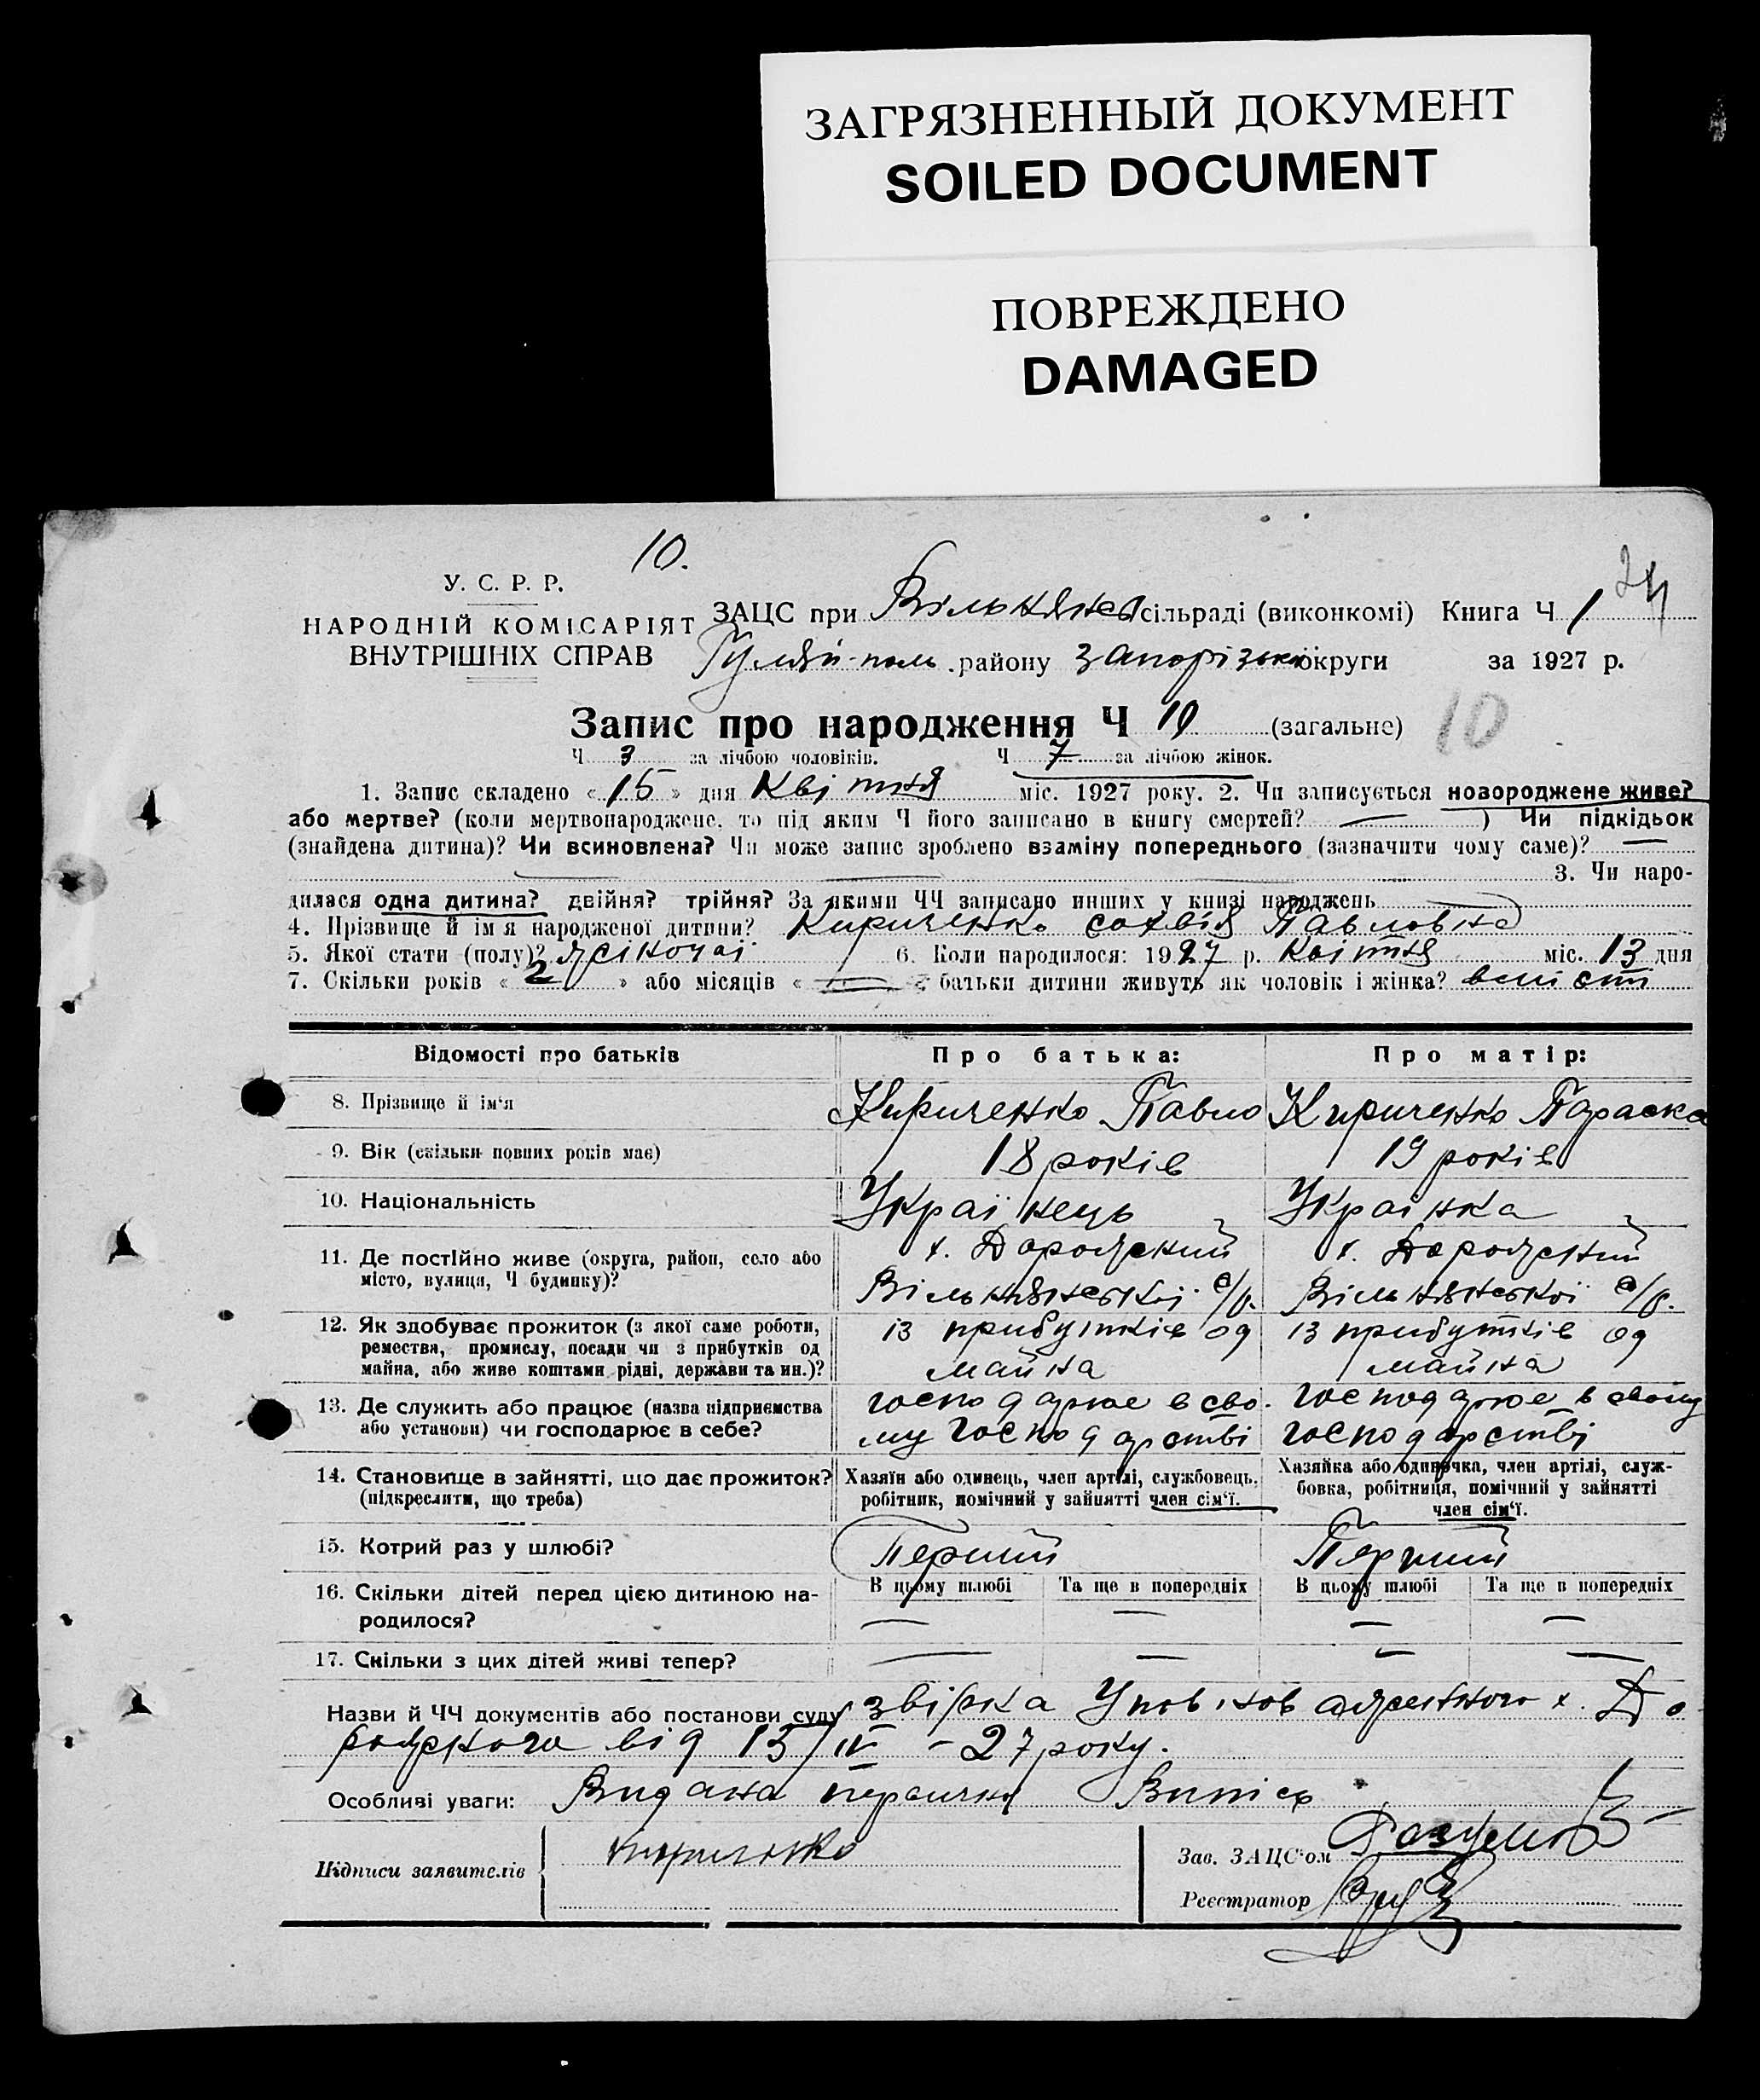 ЗАГРЯЗНЕННЫЙ ДОКУМЕНТ
SOILED DOCUMENT
ПОВРЕЖДЕНО
DAMAGED
10.
24
У. С. Р. Р.
НАРОДНІЙ КОМІСАРІЯТ
ВНУТРІШНІХ СПРАВ
ЗАЦС при сільраді (виконкомі) Книга Ч 1
Гуляй-поль району Запорізької округи за 1927 р.
Запис про народження Ч 10 (загальне) 10
Ч 3 за лічбою чоловіків. Ч 7 за лічбою жінок.
1. Запис складено « 15 » дня Квітня міс. 1927 року. 2. Чи записується новороджене живе?
або мертве? (коли мертвонароджене, то під яким Ч його записано в книгу смертей? — ) Чи підкідьок
(знайдена дитина)? Чи всиновлена? Чи може запис зроблено взаміну попереднього (зазначити чому саме)? —
3. Чи наро-
дилася одна дитина? двійня? трійня? За якими ЧЧ записано инших у книзі народжень
4. Прізвище й ім'я народженої дитини? Кириченко Павловна
5. Якої стати (полу)? жіночої 6. Коли народилося: 1927 р. Квітня міс. 13 дня
7. Скільки років « 2 » або місяців « — » батьки дитини живуть як чоловік і жінка?
Відомості про батьків Про батька: Про матір:
8. Прізвище й ім'я Кириченко Павло Кириченко Параска
9. Вік (скільки повних років має) 18 років 19 років
10. Національність Українець Українка
11. Де постійно живе (округа, район, село або х. Дорожений х. Дорожений
місто, вулиця, Ч будинку)? Вільнянської с/р. Вільнянської с/р.
12. Як здобуває прожиток (з якої саме роботи, із прибутків од із прибутків од
ремества, промислу, посади чи з прибутків од
майна, або живе коштами рідні, держави та ин.)? майна майна
13. Де служить або працює (назва підприємства господарює в сво- господарює в своему
або установи) чи господарює в себе? му господарстві господарстві
14. Становище в зайнятті, що дає прожиток? Хазяїн або одинець, член артілі, службовець, Хазяйка або одиначка, член артілі, служ-
(підкреслити, що треба) робітник, помічний у зайнятті член сім'ї. бовка, робітниця, помічний у зайнятті
член сім'ї.
15. Котрий раз у шлюбі? Перший Перший
16. Скільки дітей перед цією дитиною на- В цьому шлюбі Та ще в попередніх В цьому шлюбі Та ще в попередніх
родилося? — — — —
17. Скільки з цих дітей живі тепер? — — — —
Назви й ЧЧ документів або постанови суду звірка х. До
від 15/IV – 27 року.
Особливі уваги: Видана первична Випись
Підписи заявителів Кириченко Зав. ЗАЦС'ом
Реєстратор